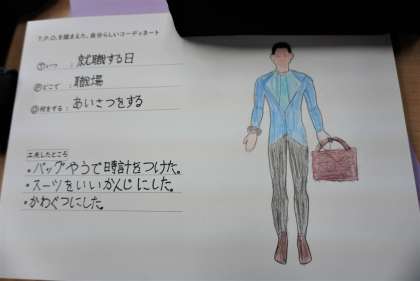 T.P.O.を踏まえた、自分らしいコーディネート
Ⓣいつ : 就職する日
Ⓟどこで : 職場
Ⓞ何をする : あいさつをする
工夫したところ
・バッグやうで時計をつけた。
・スーツをいいかんじにした。
・かわぐつにした。